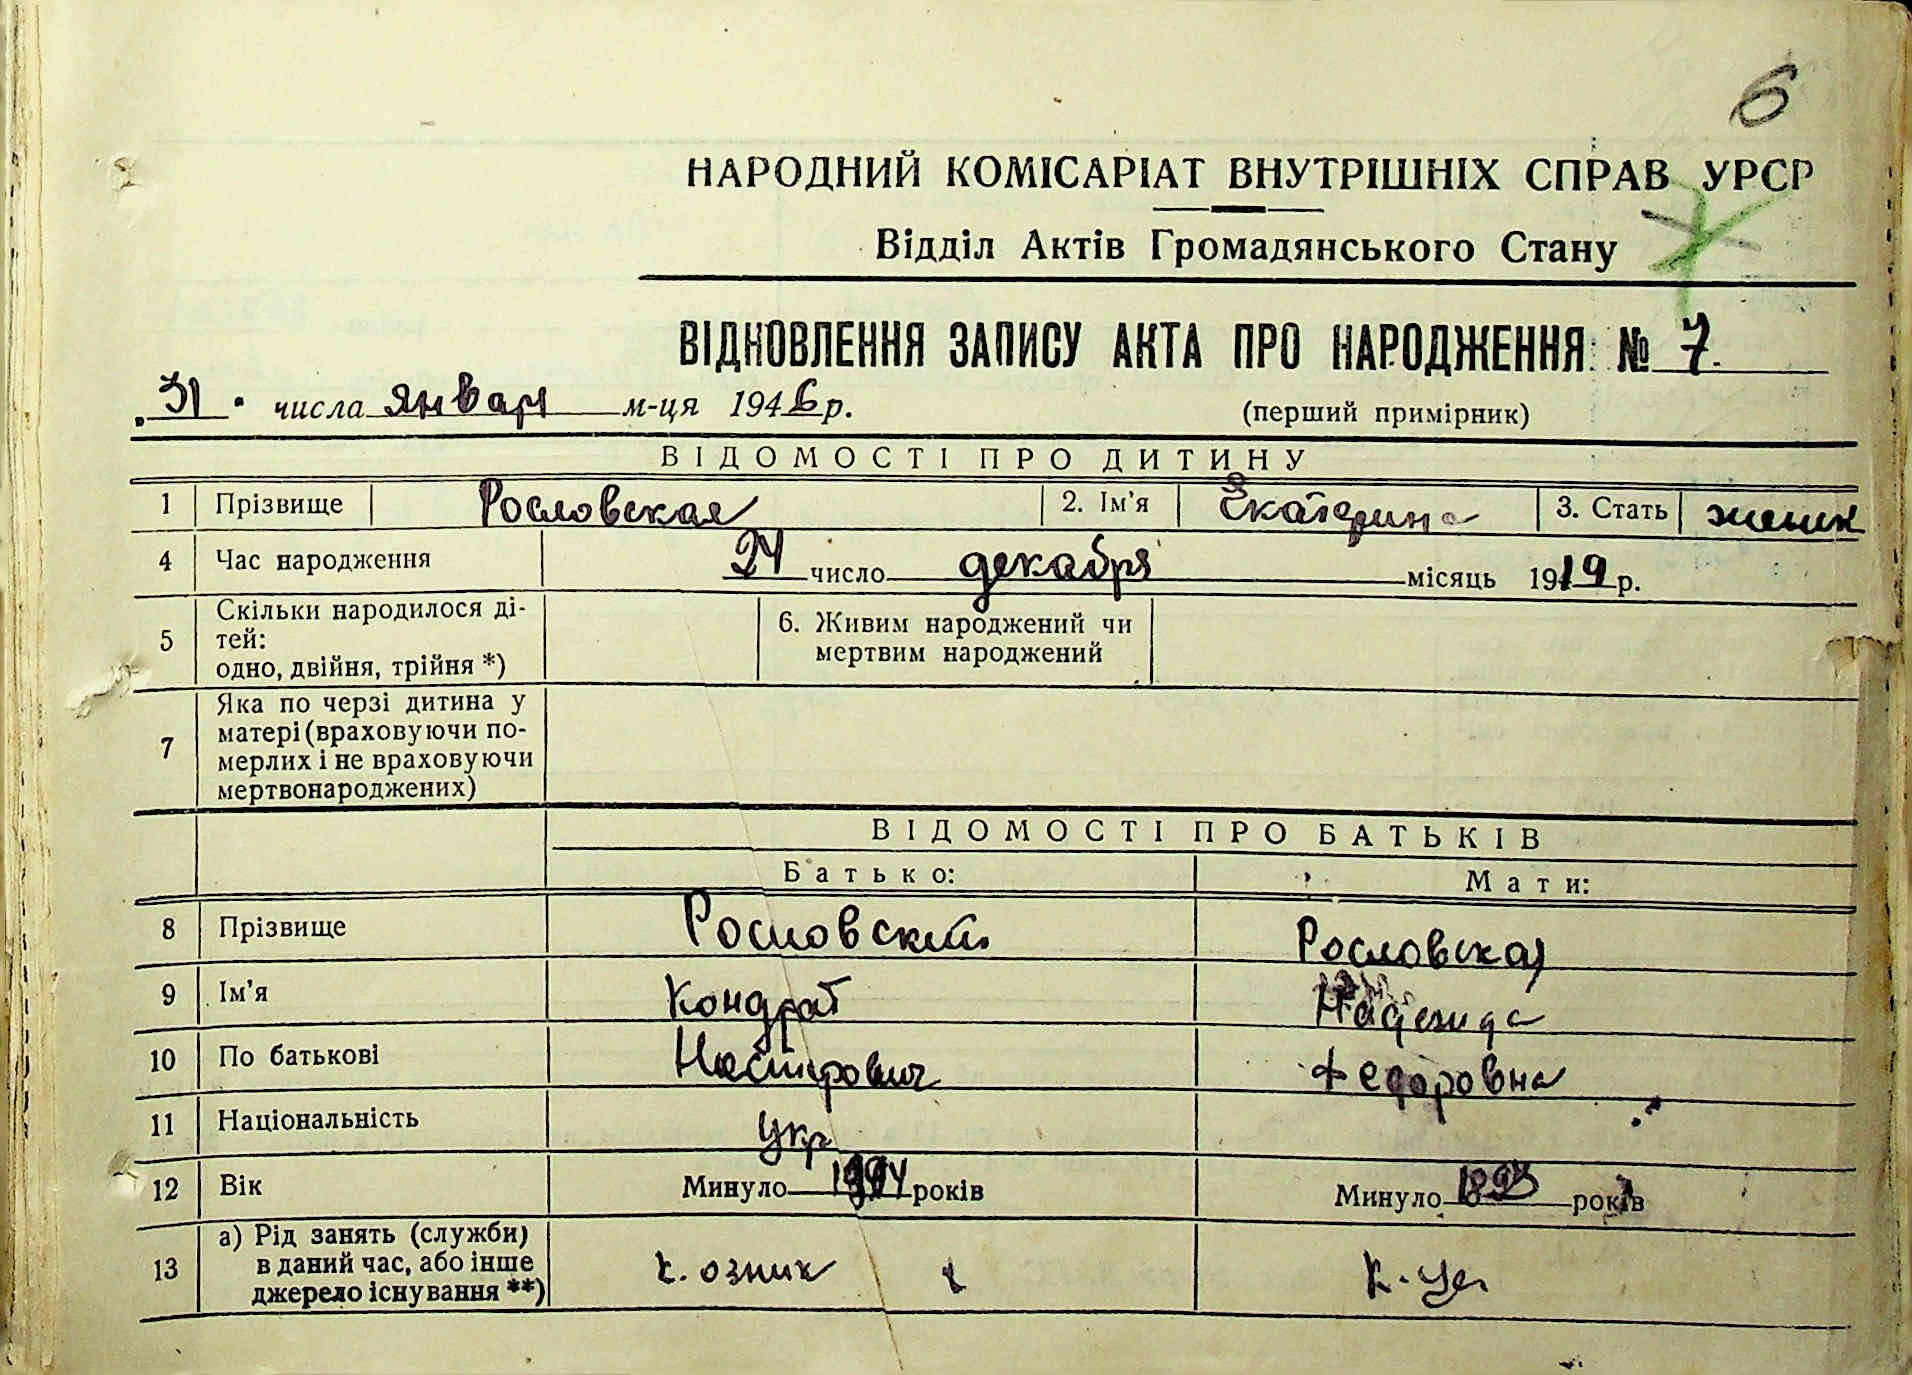 6
НАРОДНИЙ КОМІСАРІАТ ВНУТРІШНІХ СПРАВ УРСР
Відділ Актів Громадянського Стану
ВІДНОВЛЕННЯ ЗАПИСУ АКТА ПРО НАРОДЖЕННЯ № 7
31 числа январ м-ця 1946 р.
(перший примірник)
ВІДОМОСТІ ПРО ДИТИНУ
1 Прізвище Рословская 2. Ім'я Екатерина 3. Стать женск
4 Час народження 24 число декабря місяць 1919 р.
5 Скільки народилося ді-
тей:
одно, двійня, трійня *)
6. Живим народжений чи
мертвим народжений
7 Яка по черзі дитина у
матері (враховуючи по-
мерлих і не враховуючи
мертвонароджених)
ВІДОМОСТІ ПРО БАТЬКІВ
Батько: Мати:
8 Прізвище Рословский Рословская
9 Ім'я Кондрат Надежда
10 По батькові Нестирович Федоровна
11 Національність укр
12 Вік Минуло років Минуло 1893 років
13 а) Рід занять (служби)
в даний час, або інше
джерело існування **)
к. озник к-ца